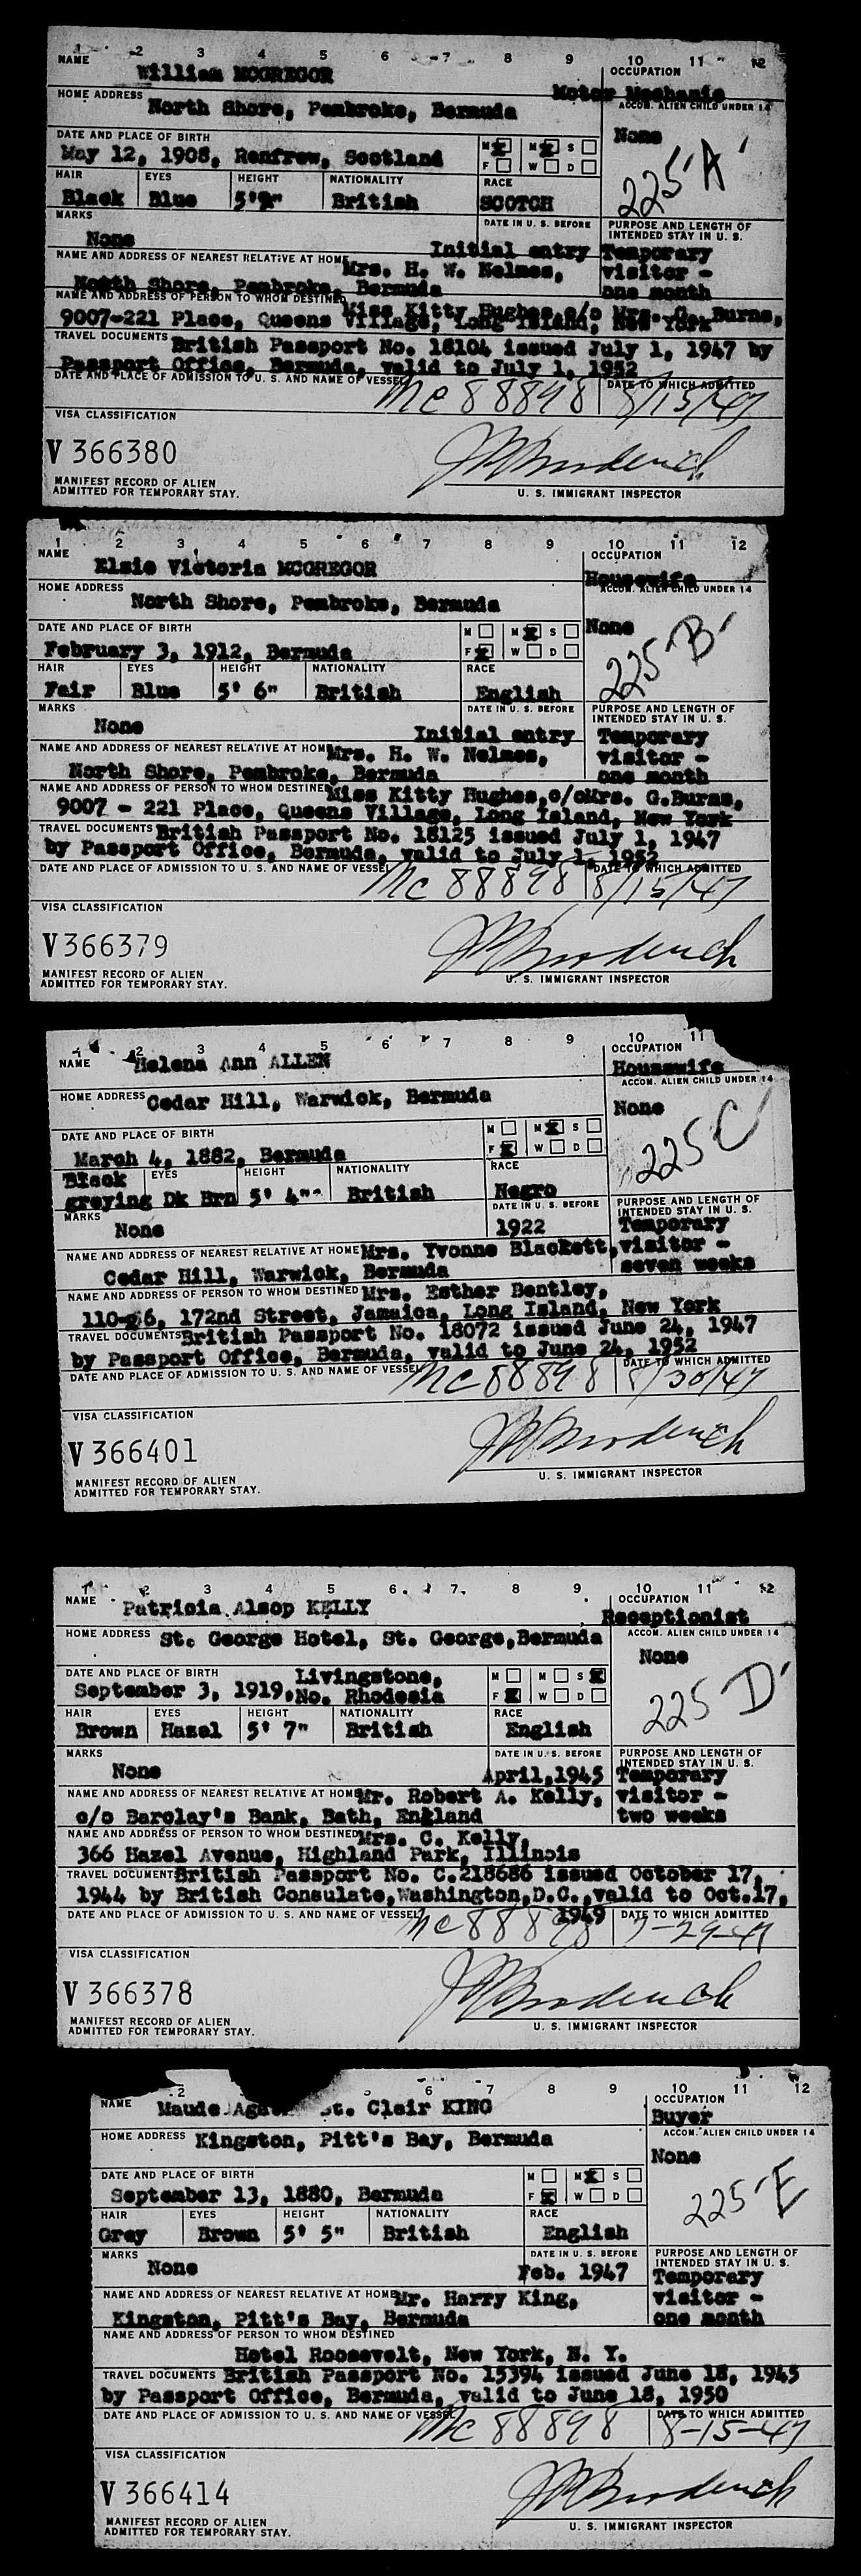 1 2 3 4 5 6 7 8 9 10 11 12
NAME William MCGREGOR
OCCUPATION Motor Mechanic
HOME ADDRESS North Shore, Pembroke, Bermuda
ACCOM. ALIEN CHILD UNDER 14
None
DATE AND PLACE OF BIRTH
May 12, 1908, Renfrew, Scotland
M X M X S
F W D
225 'A'
HAIR EYES HEIGHT NATIONALITY RACE
Black Blue British SCOTCH
MARKS DATE IN U. S. BEFORE PURPOSE AND LENGTH OF INTENDED STAY IN U. S.
None Initial entry Temporary
NAME AND ADDRESS OF NEAREST RELATIVE AT HOME Mrs. H. W. Nelmes, visitor -
North Shore, Pembroke, Bermuda one month
NAME AND ADDRESS OF PERSON TO WHOM DESTINED Miss Kitty Hughes c/o Mrs. G. Burns,
9007-221 Place, Queens Village, Long Island, New York
TRAVEL DOCUMENTS British Passport No. 18104 issued July 1, 1947 by
Passport Office, Bermuda, valid to July 1, 1952
DATE AND PLACE OF ADMISSION TO U. S. AND NAME OF VESSEL DATE TO WHICH ADMITTED
Mc 88898 8/15/47
VISA CLASSIFICATION
V 366380
MANIFEST RECORD OF ALIEN
ADMITTED FOR TEMPORARY STAY.
U. S. IMMIGRANT INSPECTOR
1 2 3 4 5 6 7 8 9 10 11 12
NAME Elsie Victoria MCGREGOR
OCCUPATION Housewife
HOME ADDRESS North Shore, Pembroke, Bermuda
ACCOM. ALIEN CHILD UNDER 14
None
DATE AND PLACE OF BIRTH
February 3, 1912, Bermuda
M M X S
F X W D
225 'B'
HAIR EYES HEIGHT NATIONALITY RACE
Fair Blue 5' 6" British English
MARKS DATE IN U. S. BEFORE PURPOSE AND LENGTH OF INTENDED STAY IN U. S.
None Initial entry Temporary
NAME AND ADDRESS OF NEAREST RELATIVE AT HOME Mrs. H. W. Nelmes, visitor -
North Shore, Pembroke, Bermuda one month
NAME AND ADDRESS OF PERSON TO WHOM DESTINED Miss Kitty Hughes, c/o Mrs. G.Burns,
9007 - 221 Place, Queens Village, Long Island, New York
TRAVEL DOCUMENTS British Passport No. 18125 issued July 1, 1947
by Passport Office, Bermuda, valid to July 1, 1952
DATE AND PLACE OF ADMISSION TO U. S. AND NAME OF VESSEL DATE TO WHICH ADMITTED
Mc 88898 8/15/47
VISA CLASSIFICATION
V 366379
MANIFEST RECORD OF ALIEN
ADMITTED FOR TEMPORARY STAY.
U. S. IMMIGRANT INSPECTOR
1 2 3 4 5 6 7 8 9 10 11
NAME Helena Ann ALLEN
OCCUPATION Housewife
HOME ADDRESS Cedar Hill, Warwick, Bermuda
ACCOM. ALIEN CHILD UNDER 14
None
DATE AND PLACE OF BIRTH
March 4, 1882, Bermuda
M M X S
F X W D
225 C
Black EYES HEIGHT NATIONALITY RACE
greying Dk Brn 5' 4" British Negro
MARKS DATE IN U. S. BEFORE PURPOSE AND LENGTH OF INTENDED STAY IN U. S.
None 1922 Temporary
NAME AND ADDRESS OF NEAREST RELATIVE AT HOME Mrs. Yvonne Blackett, visitor -
Cedar Hill, Warwick, Bermuda seven weeks
NAME AND ADDRESS OF PERSON TO WHOM DESTINED Mrs. Esther Bentley,
172nd Street, Jamaica, Long Island, New York
TRAVEL DOCUMENTS British Passport No. 18072 issued June 24, 1947
by Passport Office, Bermuda, valid to June 24, 1952
DATE AND PLACE OF ADMISSION TO U. S. AND NAME OF VESSEL DATE TO WHICH ADMITTED
Mc 88898 8/30/47
VISA CLASSIFICATION
V 366401
MANIFEST RECORD OF ALIEN
ADMITTED FOR TEMPORARY STAY.
U. S. IMMIGRANT INSPECTOR
1 2 3 4 5 6 7 8 9 10 11 12
NAME Patricia Alsop KELLY
OCCUPATION Receptionist
HOME ADDRESS St. George Hotel, St. George, Bermuda
ACCOM. ALIEN CHILD UNDER 14
None
DATE AND PLACE OF BIRTH Livingstone,
September 3, 1919, No. Rhodesia
M M S X
F X W D
225 'D'
HAIR EYES HEIGHT NATIONALITY RACE
Brown Hazel 5' 7" British English
MARKS DATE IN U. S. BEFORE PURPOSE AND LENGTH OF INTENDED STAY IN U. S.
None April, 1945 Temporary
NAME AND ADDRESS OF NEAREST RELATIVE AT HOME Mr. Robert A. Kelly, visitor -
c/o Barclay's Bank, Bath, England two weeks
NAME AND ADDRESS OF PERSON TO WHOM DESTINED Mrs. C. Kelly,
366 Hazel Avenue, Highland Park, Illinois
TRAVEL DOCUMENTS British Passport No. C.218686 issued October 17,
1944 by British Consulate, Washington, D.C., valid to Oct.17,
DATE AND PLACE OF ADMISSION TO U. S. AND NAME OF VESSEL 1949 DATE TO WHICH ADMITTED
Mc 88898 7-29-47
VISA CLASSIFICATION
V 366378
MANIFEST RECORD OF ALIEN
ADMITTED FOR TEMPORARY STAY.
U. S. IMMIGRANT INSPECTOR
2 6 7 8 9 10 11 12
NAME Maude St. Clair KING
OCCUPATION Buyer
HOME ADDRESS Kingston, Pitt's Bay, Bermuda
ACCOM. ALIEN CHILD UNDER 14
None
DATE AND PLACE OF BIRTH
September 13, 1880, Bermuda
M M X S
F X W D
225 'E'
HAIR EYES HEIGHT NATIONALITY RACE
Grey Brown 5' 5" British English
MARKS DATE IN U. S. BEFORE PURPOSE AND LENGTH OF INTENDED STAY IN U. S.
None Feb. 1947 Temporary
NAME AND ADDRESS OF NEAREST RELATIVE AT HOME Mr. Harry King, visitor -
Kingston, Pitt's Bay, Bermuda one month
NAME AND ADDRESS OF PERSON TO WHOM DESTINED
Hotel Roosevelt, New York, N. Y.
TRAVEL DOCUMENTS British Passport No. 15394 issued June 18, 1945
by Passport Office, Bermuda, valid to June 18, 1950
DATE AND PLACE OF ADMISSION TO U. S. AND NAME OF VESSEL DATE TO WHICH ADMITTED
Mc 88898 8-15-47
VISA CLASSIFICATION
V 366414
MANIFEST RECORD OF ALIEN
ADMITTED FOR TEMPORARY STAY.
U. S. IMMIGRANT INSPECTOR